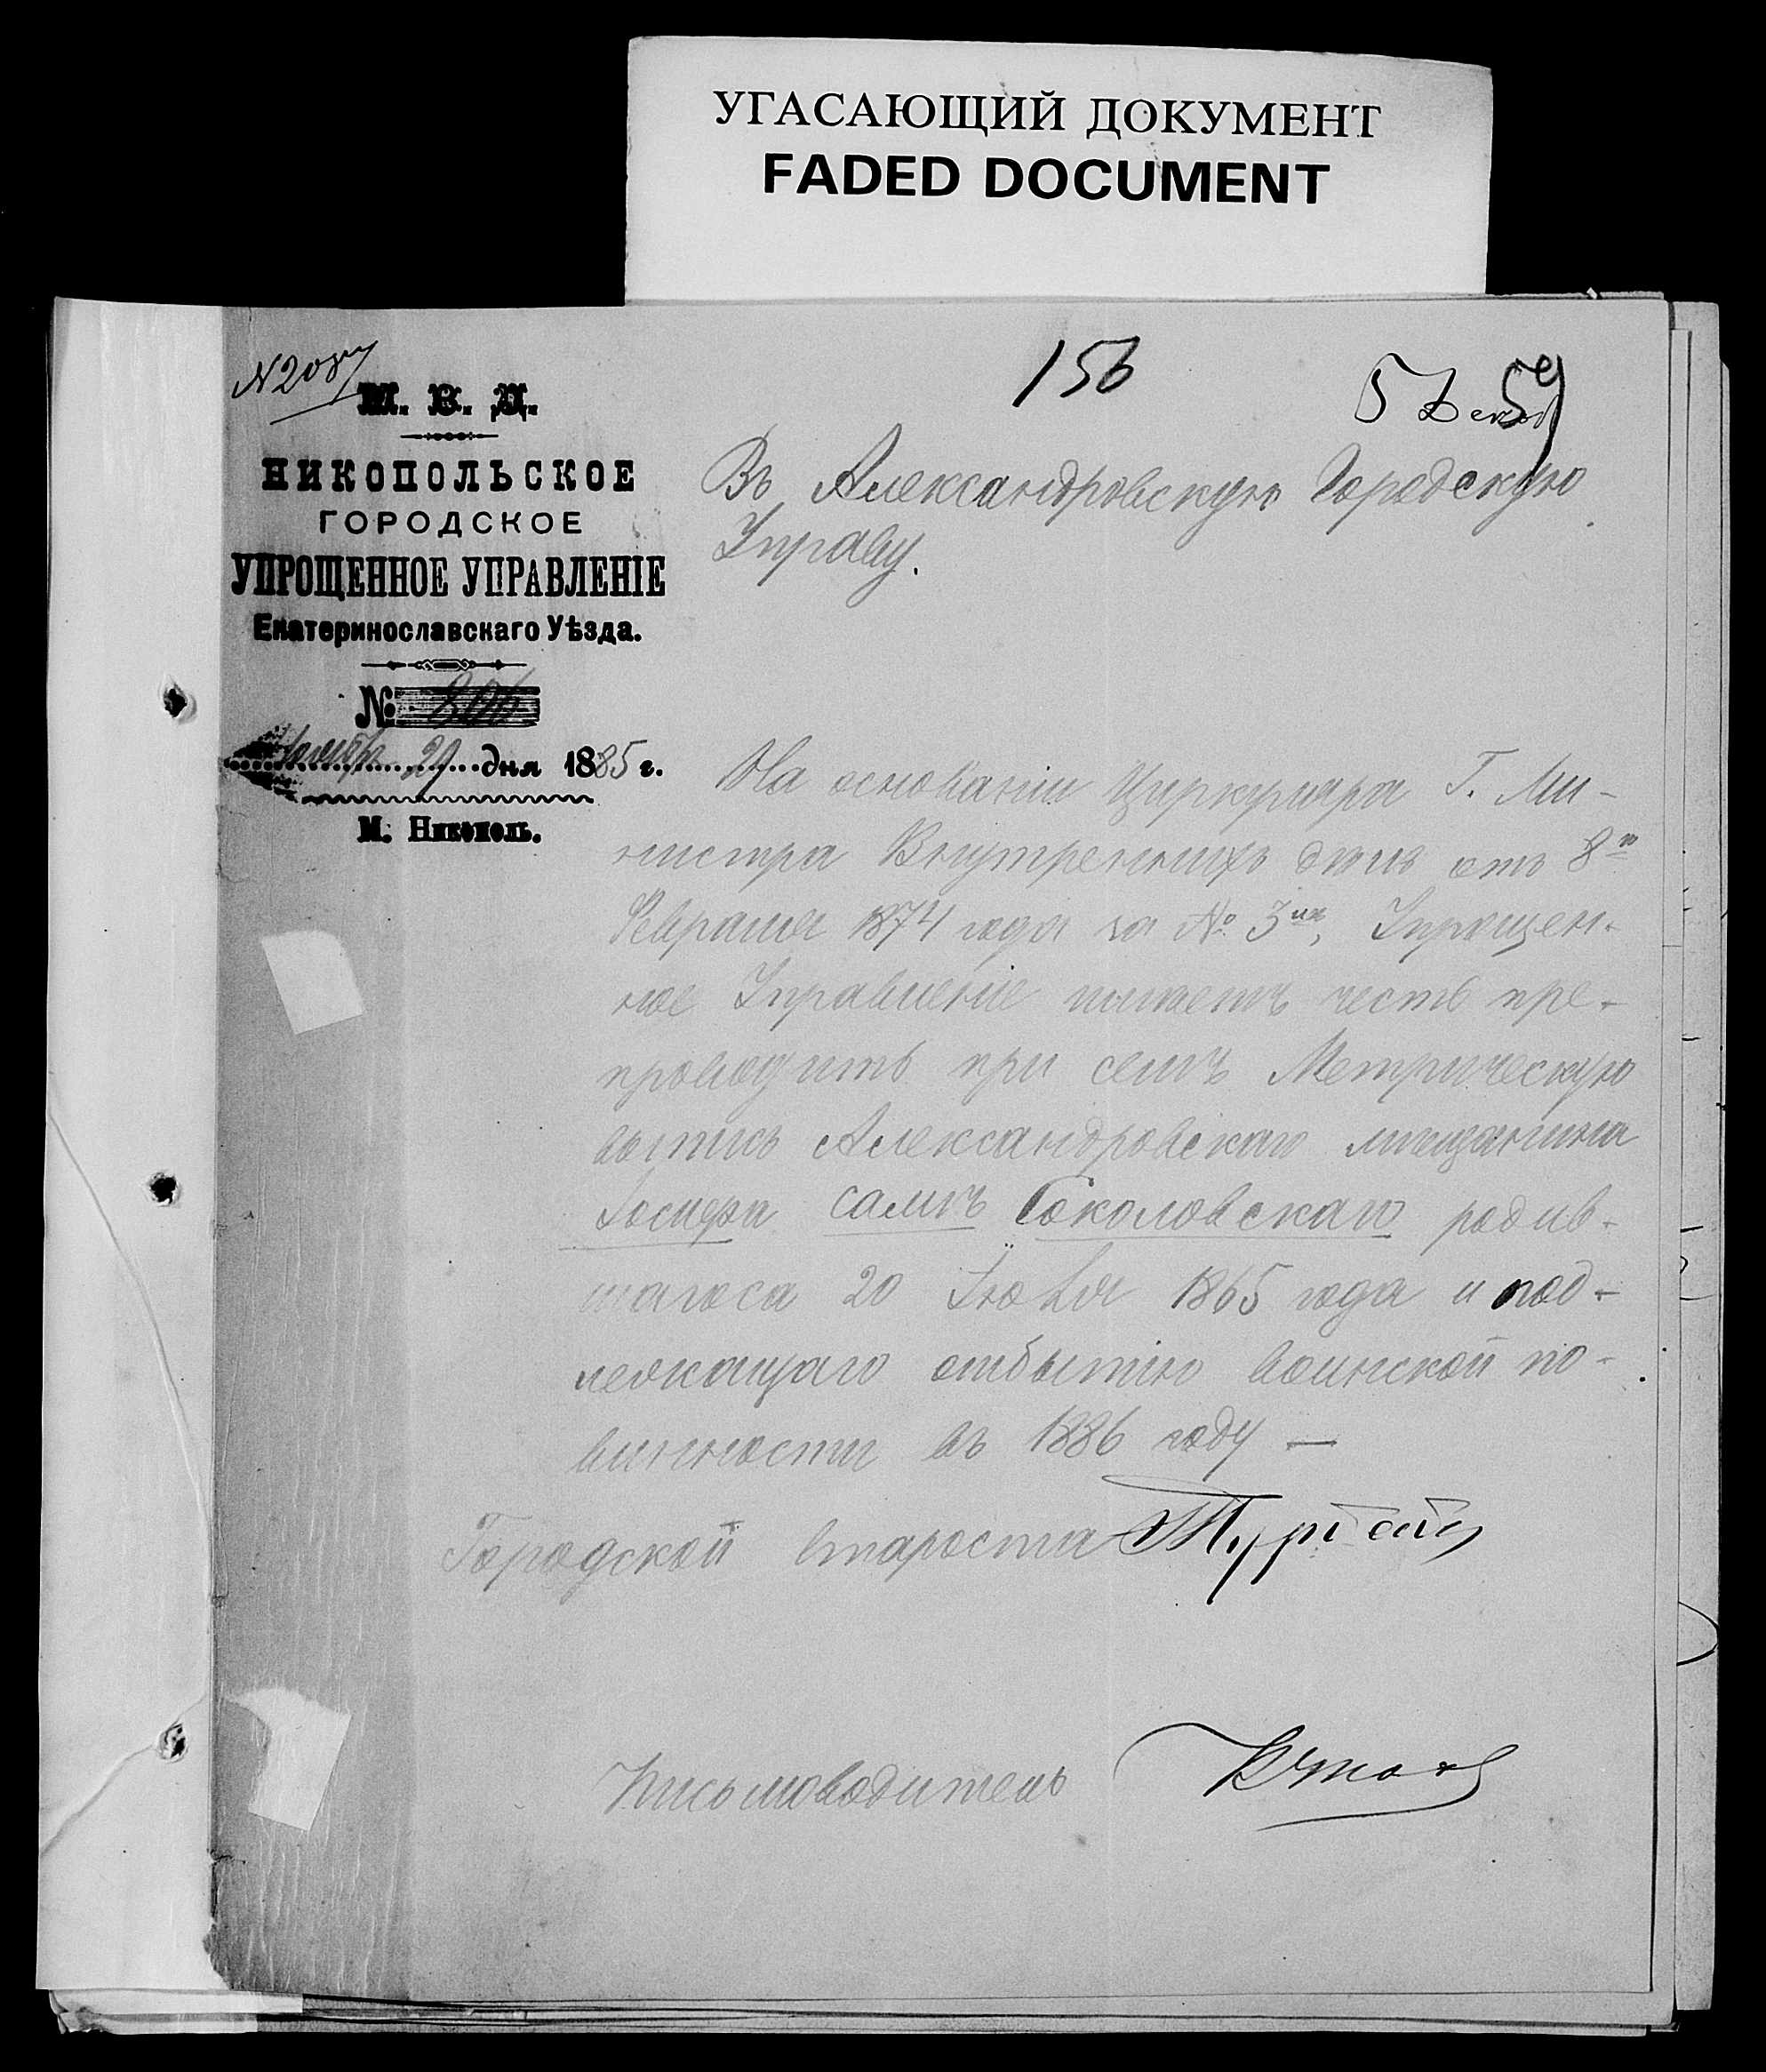 УГАСАЮЩИЙ ДОКУМЕНТ
FADED DOCUMENT
156
5 Декаб
59
М. В. Д.
НИКОПОЛЬСКОЕ
ГОРОДСКОЕ
УПРОЩЕННОЕ УПРАВЛЕНІЕ
Екатеринославскаго Уѣзда.
№ 806
Ноября 29 дня 1885 г.
М. Никополь.
Въ Александровскую Городскую
Управу.
На основаніи Циркуляра Г. Ми-
нистра Внутреннихъ дѣлъ отъ 8го
Февраля 1874 года за № 3мъ, Упрощен-
ное Управленіе имѣетъ честь пре-
проводить при семъ Метрическую
выпись Александровскаго мѣщанина
Іосифа Соколовскаго родив-
шагося 20 Іюля 1865 года и под-
лежащаго отбытію воинской по-
винности въ 1886 году —
Городской Староста
Письмоводитель